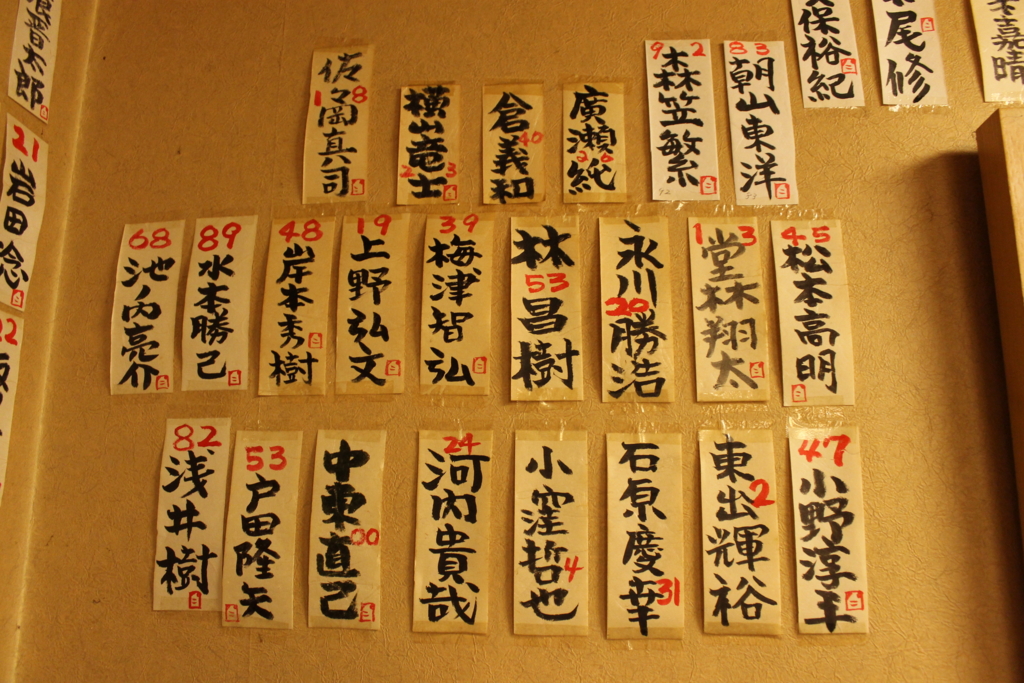 佐々岡真司 18
横山竜士 23
倉義和 40
廣瀬純 26
森笠繁 92
朝山東洋 83
保裕紀
尾修
嘉晴
晋太郎
21 岩田
68 池ノ内亮介
89 水本勝己
48 岸本秀樹
19 上野弘文
39 梅津智弘
林昌樹 53
永川勝浩 20
堂林翔太 13
45 松本高明
82 浅井樹
53 戸田隆矢
中東直己 00
24 河内貴哉
小窪哲也 4
石原慶幸 31
東出輝裕 2
47 小野淳平